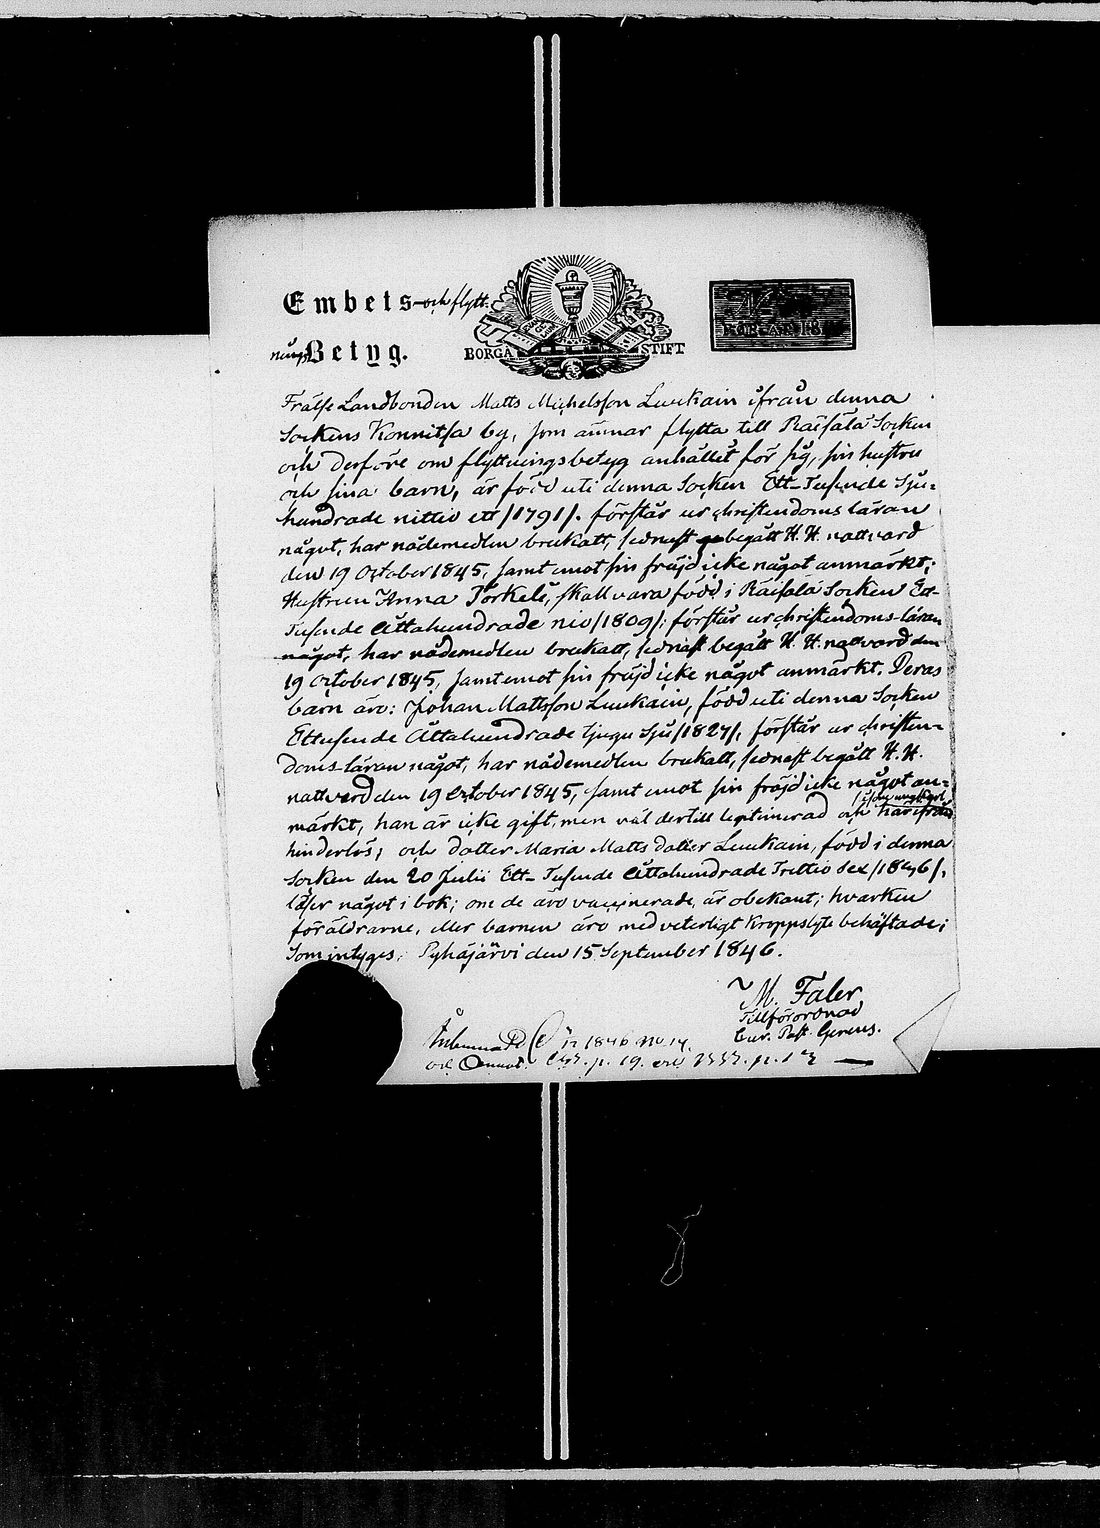 Embets-och flytt-
nings Betyg.
BORGÅ STIFT
Frälse Landbonden Matts Michelsson Luukain ifrån denna
Sockens Konnitsa by, som ämnar flytta till Räisälä Socken
och derföre om flyttningsbetyg anhållit för sig, sin hustru
och sina barn, är född uti denna Socken Ett-Tusende Sju-
hundrade nittio ett /1791/. förstår ur christendoms läran
något, har nådemedlen brukatt, sednast begått H. H. nattvard
den 19 October 1845, samt emot sin fräjd icke något anmärkt;
Hustrun Anna Törkels, skall vara född i Räisälä Socken Ett-
Tusende Åttahundrade nio /1809/: förstår ur christendoms-läran
något, har nådemedlen brukatt, sednast begått H. H. nattvard den
19 October 1845, samt emot sin fräjd icke något anmärkt. Deras
barn äro: Johan Mattsson Luukain, född uti denna Socken
Ettusende Åttahundrade tjugu sju /1827/, förstår ur christen-
doms-läran något, har nådemedlen brukatt, sednast begått H. H.
nattvard den 19 October 1845, samt emot sin fräjd icke något an-
märkt, han är icke gift, men väl dertill legitimerad och härifrån
hinderlös; och dotter Maria Matts dotter Luukain, född i denna
Socken den 20 Julii Ett-Tusende Åttahundrade Trettio sex /1836/,
läser något i bok; om de äro vaccinerade, är obekant; hvarken
föräldrarne, eller barnen äro med veterligt Kroppslyte behäftade;
Som intygas; Pyhäjärvi den 15 September 1846.
M. Faler
Tillförordnad
Cur. Past. Gerens.
1846 No 14.
p. 19.